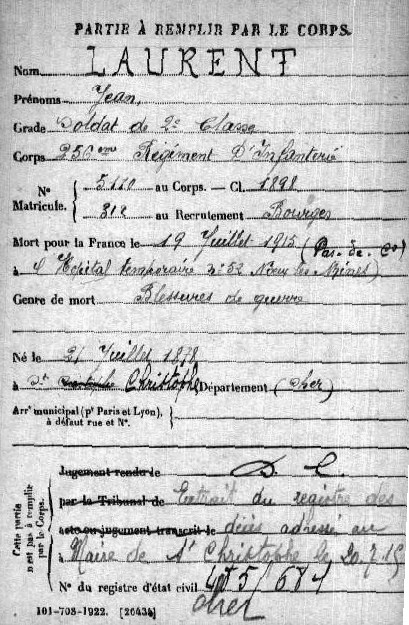 PARTIE À REMPLIR PAR LE CORPS.
Nom LAURENT
Prénoms Jean,
Grade Soldat de 2e Classe
Corps 256em Régiment D'Infanterie
N° Matricule. { 5110 au Corps. — Cl. 1898
312 au Recrutement Bourges
Mort pour la France le 19 Juillet 1915 (Pas-de-Co)
à l'Hôpital temporaire n°52 Nœux les Mines)
Genre de mort Blessures de guerre
Né le 21 Juillet 1878
à St Christophe Département (Cher)
Arrt municipal (pr Paris et Lyon),
à défaut rue et N°.
Cette partie n'est pas à remplir par le Corps.
Jugement rendu le D. C.
par le Tribunal de Extrait du registre des
acte ou jugement transcrit le décès adressé au
à Maire de St Christophe le 20.7.15
N° du registre d'état civil 5/684
cher
101-708-1922. [26434]